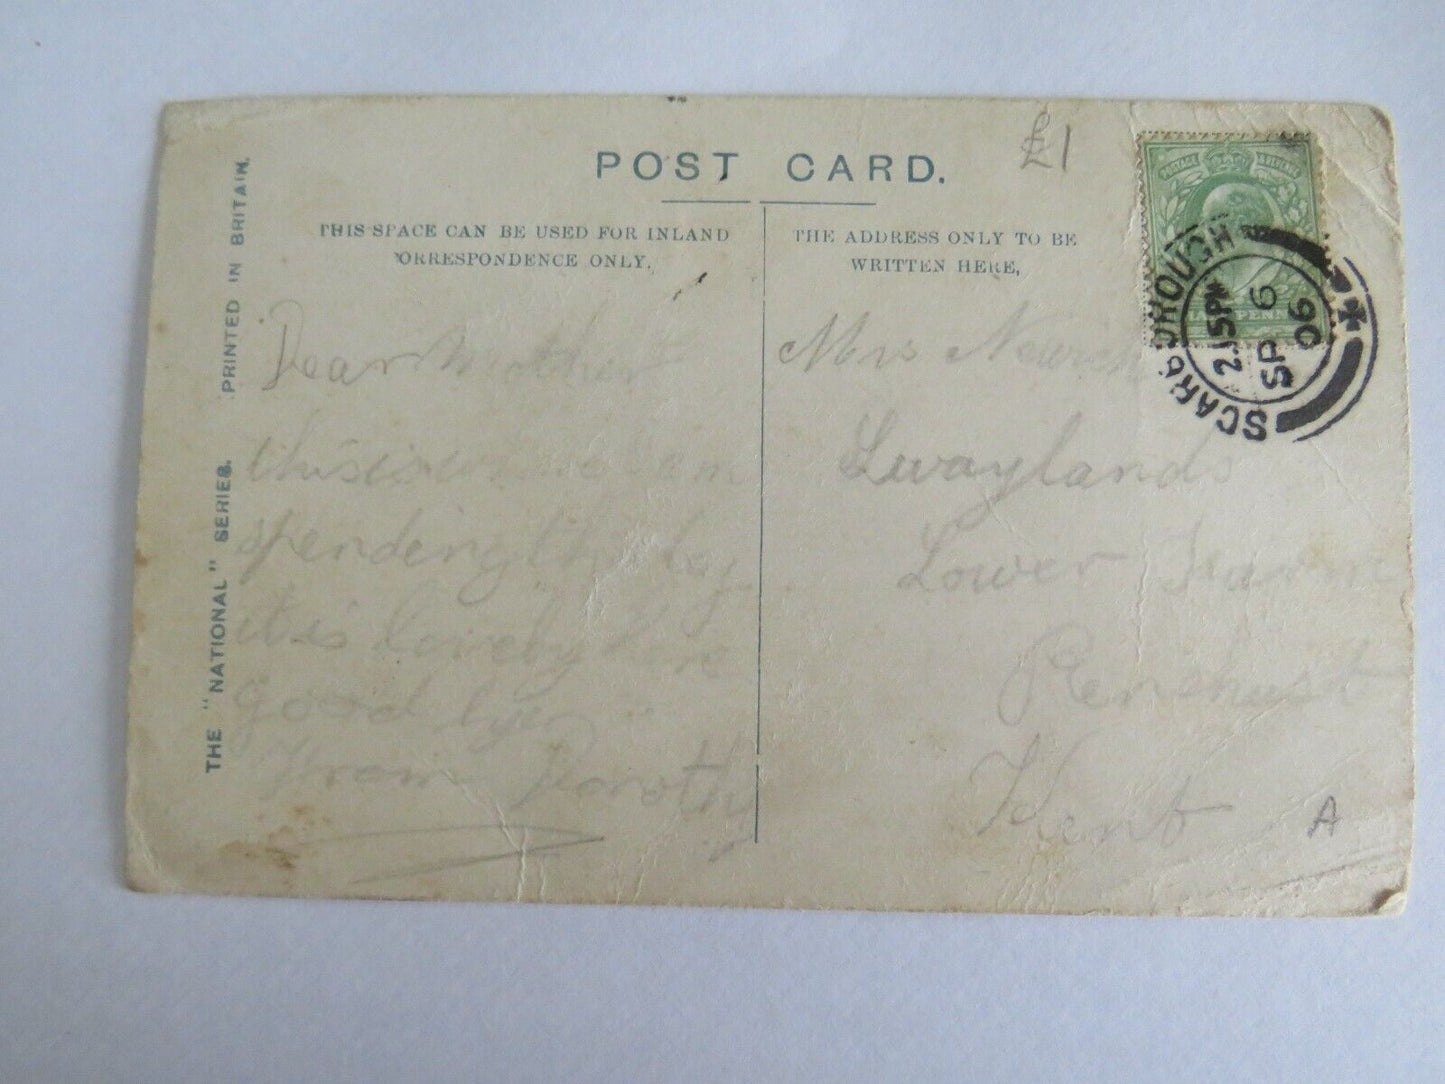 POST CARD.
£1
THIS SPACE CAN BE USED FOR INLAND
CORRESPONDENCE ONLY.
THE ADDRESS ONLY TO BE
WRITTEN HERE,
THE "NATIONAL" SERIES. PRINTED IN BRITAIN.
Dear Mother
this is
spending the day
it is lovely here
good bye
From Dorothy
Mrs
Swaylands
Lower Farm
Penshurst
Kent
A
POSTAGE & REVENUE
HALF PENNY
SCARBOROUGH
2.15PM
SP 6
06